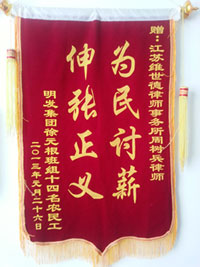 赠：江苏维世德律师事务所周树兵律师
为民讨薪
伸张正义
明发集团徐元根班组十四名农民工
二〇一三年元月二十六日